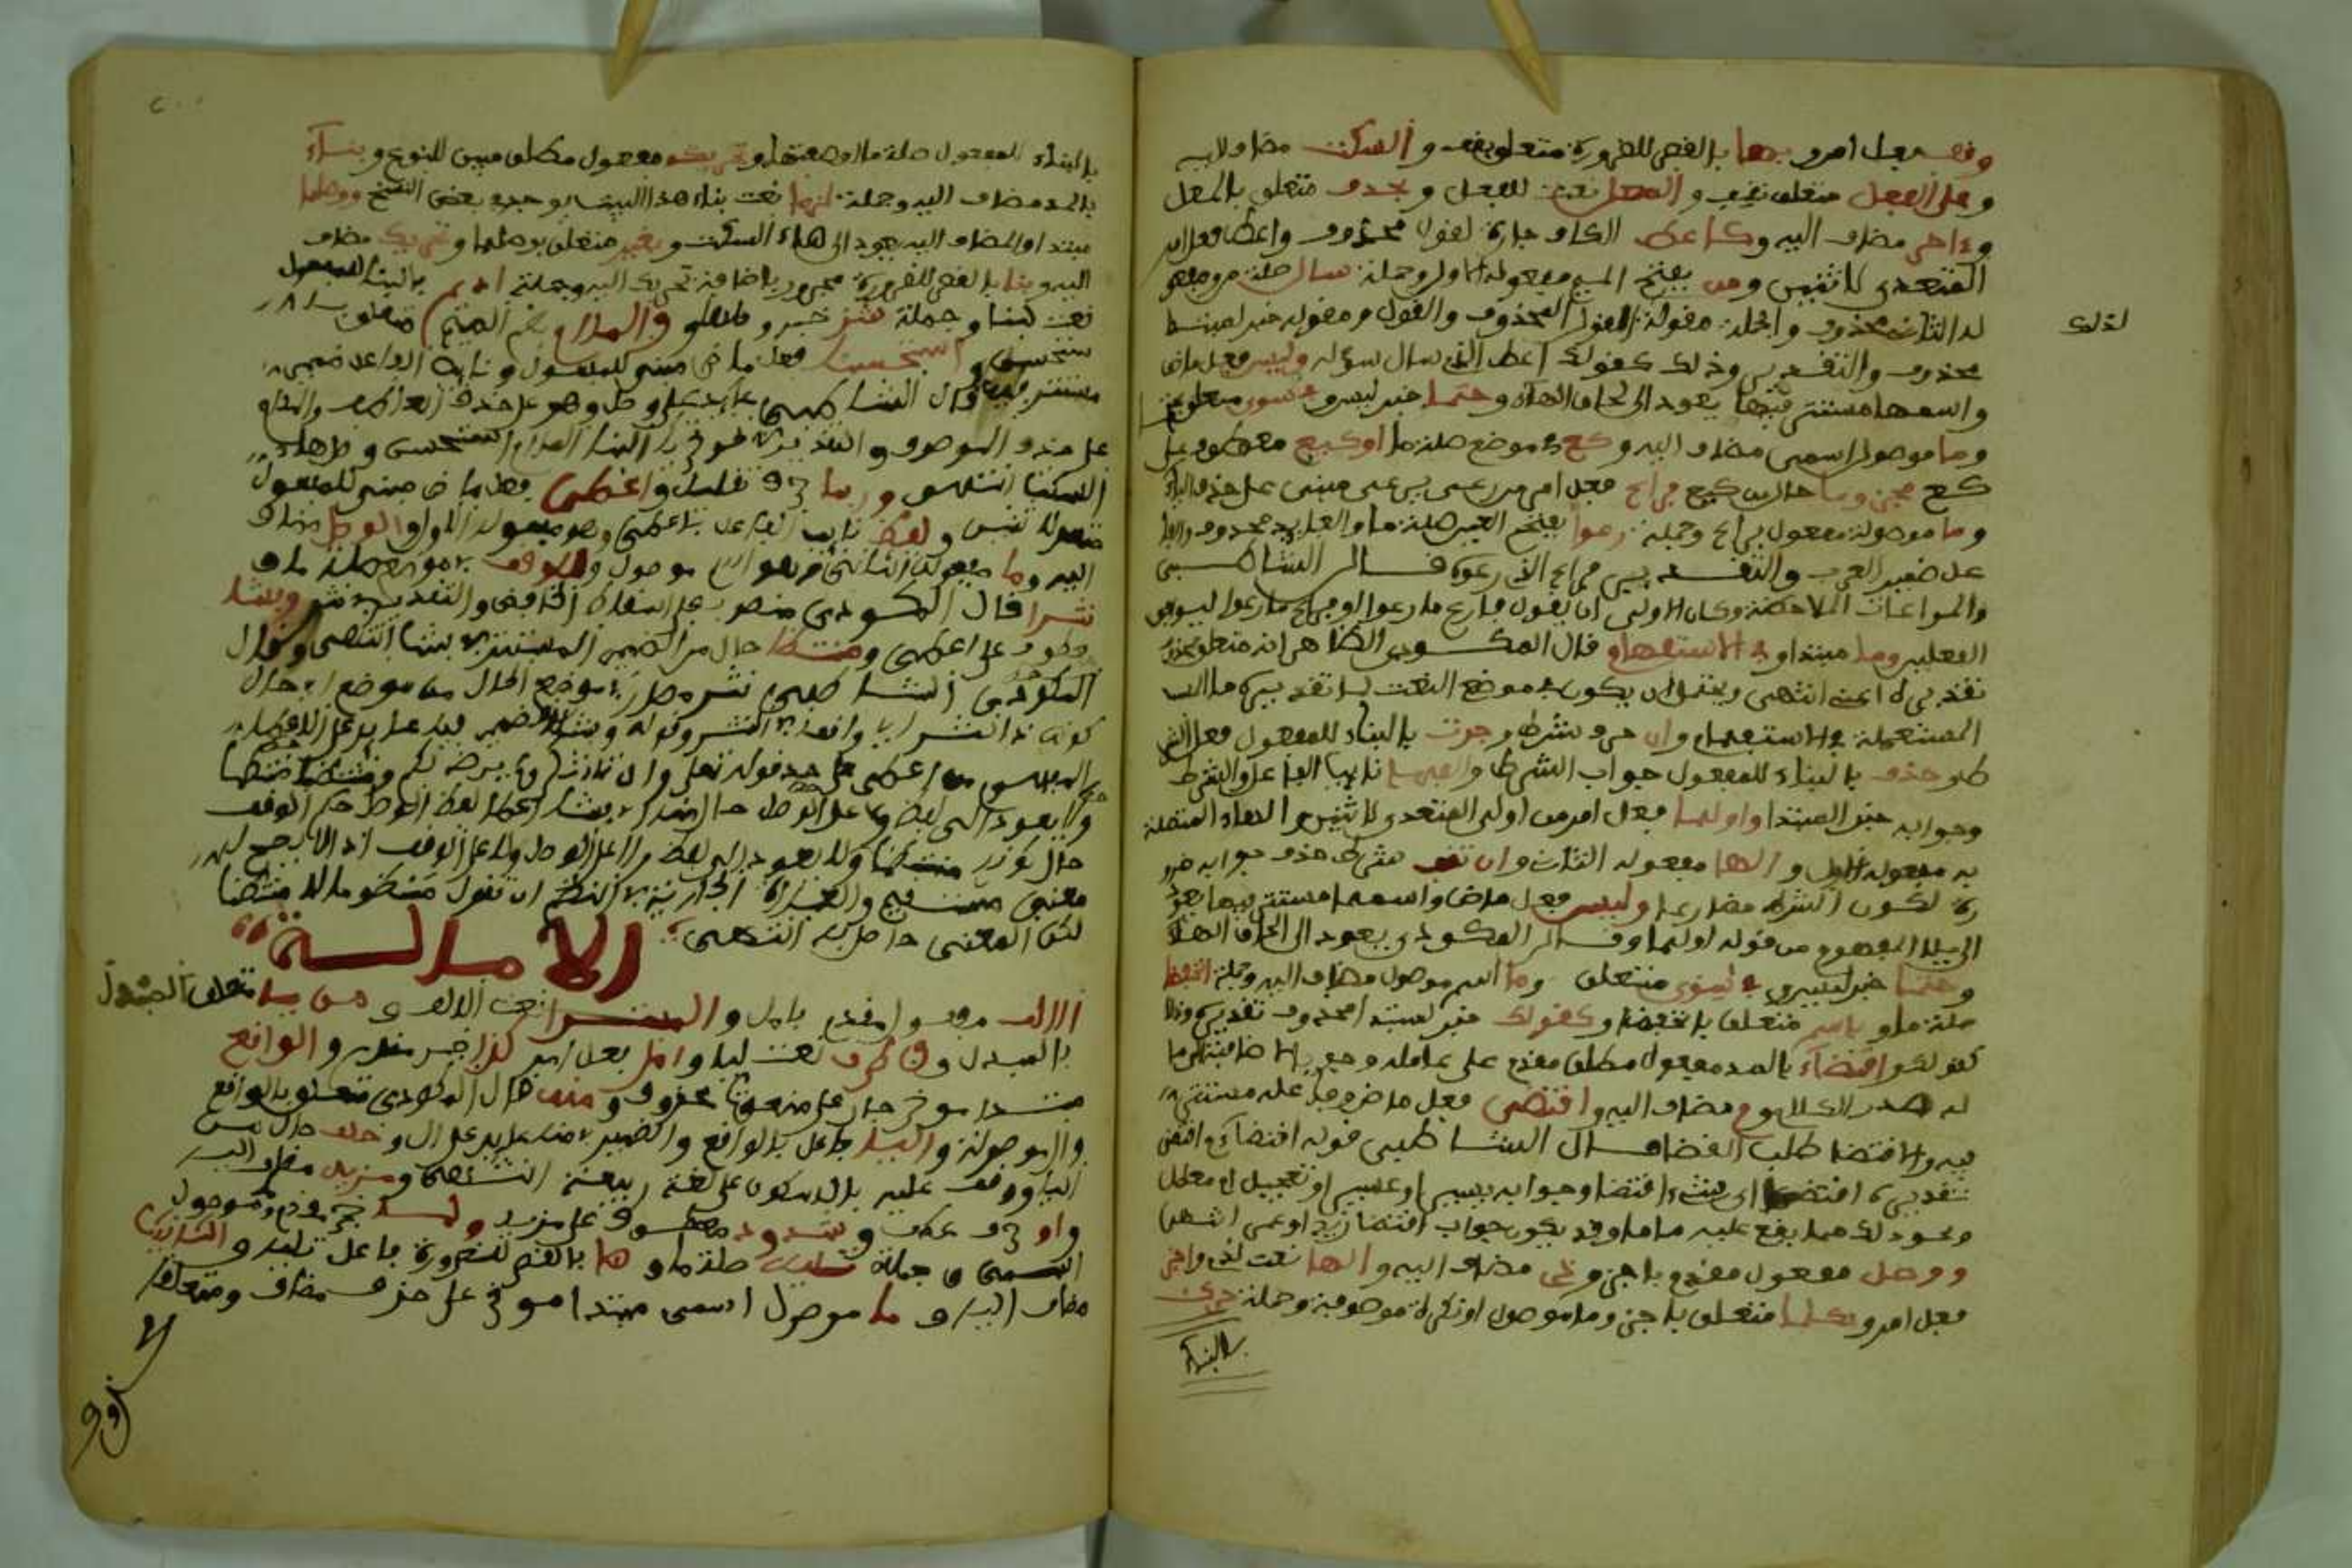 وقف فعل امر وبها بالقصر للضرورة متعلق بقف والسكت مضاف اليه
وعلى الفعل متعلق بقف والمعل نعت للفعل وبحذف متعلق بالمعل
وءاخر مضاف اليه وكاعط الكاف جارة لقول محذوف واعط فعل امر
المتعدي لاثنين ومن بفتح الميم مفعوله الاول وجملة سال صلة من ومفعو
لذلك
له الثاني محذوف والجملة مقولة للقول المحذوف والقول ومقوله خبر لمبتدا
محذوف والتقدير وذلك كقولك اعط الذي سال سؤله وليس فعل ماض
واسمها مستتر فيها يعود الى لحاق الهاء وحتما خبر ليس وفي سوى متعلق بحتما
وما موصول اسمي مضاف اليه وكع في موضع صلة ما اوكيع معطوف على
كع مجزوما حال من كيع فراع فعل امر من رعى يرعى مبني على حذف الياء
وما موصولة مفعول براع وجملة رعوا بفتح العين صلة ما والعايد محذوف
على ضمير العرب والتقدير فراع الذي رعوه قال الشاطبي
والمراعات الملاحظة وكان الاولى ان يقول فارع ما رعوا او فراع ما راعوا ليوافق
الفعلين وما مبتدا وفي الاستفهام قال المكودي الظاهر انه متعلق بمحذوف
تقديره اعني انتهى ويحتمل ان يكون في موضع النعت لما تقديره ما
المستعملة في الاستفهام وان حرف شرط وجرت بالبناء للمفعول فعل الشرط
حذف بالبناء للمفعول جواب الشرط والفها نايب الفاعل والشرط
وجوابه خبر المبتدا واولها فعل امر من اولى المتعدي لاثنين والهاء المتصلة
به مفعوله الاول والها مفعوله الثاني وان تقف شرط حذف جوابه ضرو
رة لكون الشرط مضارعا وليس فعل ماض واسمها مستتر فيها يعود
الى الايلاء المفهوم من قوله اولها وقال المكودي يعود الى الحاق الهاء
وحتما خبر ليس وفي سوى متعلق وما اسم موصول مضاف اليه وجملة انخفضا
صلة ما وباسم متعلق بانخفضا وكقولك خبر لمبتدا محذوف تقديره وذلك
كقولك واقتضاء بالمد مفعول مطلق مقدم على عامله وجوبا لاضافته الى ما
له صدر الكلام وم مضاف اليه واقتضى فعل ماض وفاعله مستتر
فيه والاقتضا طلب القضا قال الشاطبي قوله اقتضاء م اقتضى
تقديره اقتضا اي شيء اقتضا وجوابه يسير او عسير او تعجيل او مطل
ونحو ذلك مما يقع عليه ما وقد يكون جواب اقتضا زيد او عمرو انتهى
ووصل مفعول مقدم باجز وذي مضاف اليه والها نعت لذي واجز
فعل امر وبكل ما متعلق باجز وما موصول او نكرة موصوفة وجملة حرك
بالبناء
بالبناء للمفعول صلة ما او صفتها وتحريك مفعول مطلق مبين للنوع وبناء
بالمد مضاف اليه وجملة لزما نعت بناء هذا البيت يوجد في بعض النسخ ووصلها
مبتدا والمضاف اليه يعود الى هاء السكت وبغير متعلق بوصلها وتحريك مضاف
اليه وبنا بالقصر للضرورة مجرور باضافة تحريك اليه وجملة اديم بالبناء للمفعول
نعت لبنا وجملة شذ خبر وصلها وفي المدام بضم الميم متعلق
باستحسن واستحسنا فعل ماض مبني للمفعول ونايب الفاعل ضمير
مستتر فيه قال الشاطبي عايد على وصل وهو على حذف العاطف والمدام
على حذف الموصوف والتقدير لا هو في ذي البناء المدام استحسن وصل هاء
السكت انتهى وربما حرف تقليل واعطي فعل ماض مبني للمفعول
متعد لاثنين ولفظ نايب الفاعل باعطي وهو مفعوله الاول والوصل مضاف
اليه وما مفعوله الثاني وهو اسم موصول وللوقف في موضع صلة ما و
نثرا قال المكودي منصوب على اسقاط الخافض والتقدير في نثر وفشا
معطوف على اعطي ومنتظما حال من الضمير المستتر في فشا انتهى وقول
المكودي الشاطبي نثر مصدر في موضع الحال من موضع اي حال
كونه ذا نثر اي واقعا في النثر وقوله وفشا الضمير فيه عايد على الاعطاء
المفهوم من اعطي على حد قوله تعلى وان تشكروا يرضه لكم ومنتظما
ولا يعود الى لفظ ولا على الوصل حال اذ فشا اعطا لفظ الوصل حكم الوقف
حال كونه منتظما ولا يعود الى لفظ ولا على الوصل ولا على الوقف اذ لا يصح له
معنى مستقيم والعبارة الجارية في النظم ان تقول منظوما لا منتظما
لكن المعنى حاصل به انتهى
الامالة
الالف مفعول مقدم بامل والمبدل نعت الالف ومن يا متعلق بالمبدل
بالمبدل وفي طرف نعت ليا وامل فعل امر كذا خبر مقدم والواقع
مبتدا مؤخر جار على منعوت محذوف ومنه قال المكودي متعلق بالواقع
وال موصولة واليا فاعل بالواقع والضمير في منه عايد على ال وخلف حال من
اليا ووقف عليه بالسكون على لغة ربيعة انتهى ومزيد مضاف اليه
واو حرف عطف وشذوذ معطوف على مزيد ولما خبر مقدم وما موصول
اسمي وجملة تليه صلة ما وها بالقصر للضرورة فاعل تليه والتانيث
مضاف اليه وما موصول اسمي مبتدا مؤخر على حذف مضاف ومتعلقا